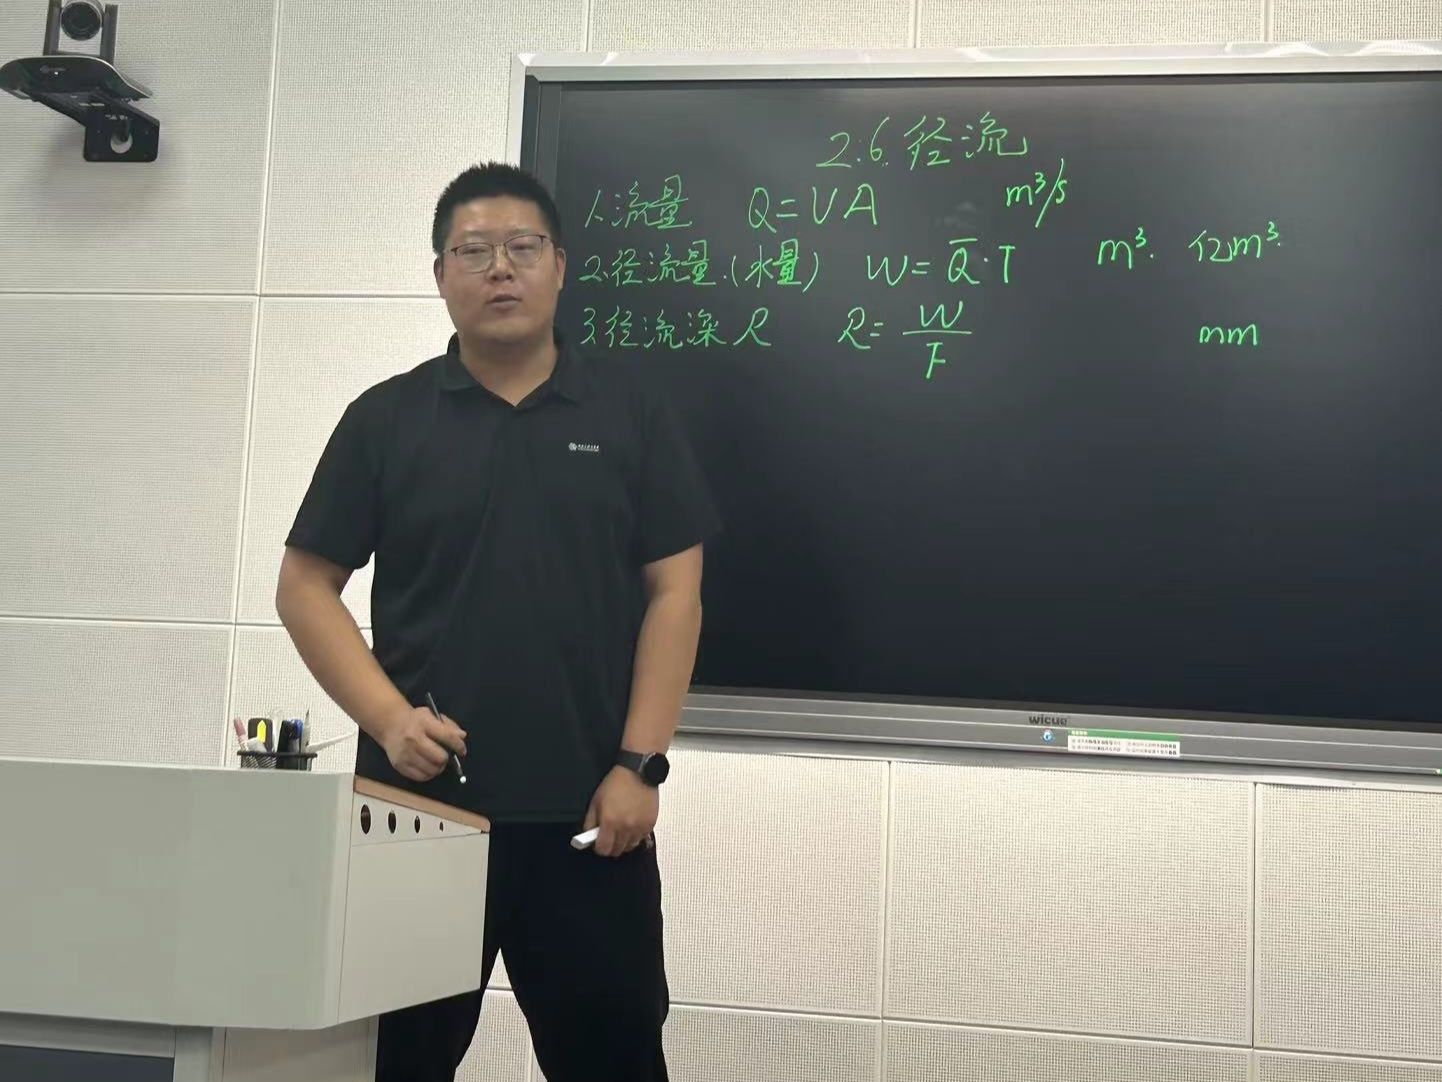 2.6. 径流
1. 流量 Q=VA m³/s
2. 径流量.(水量) W=Q̅·T m³. 亿m³.
3. 径流深 R R=W/F mm
wicue